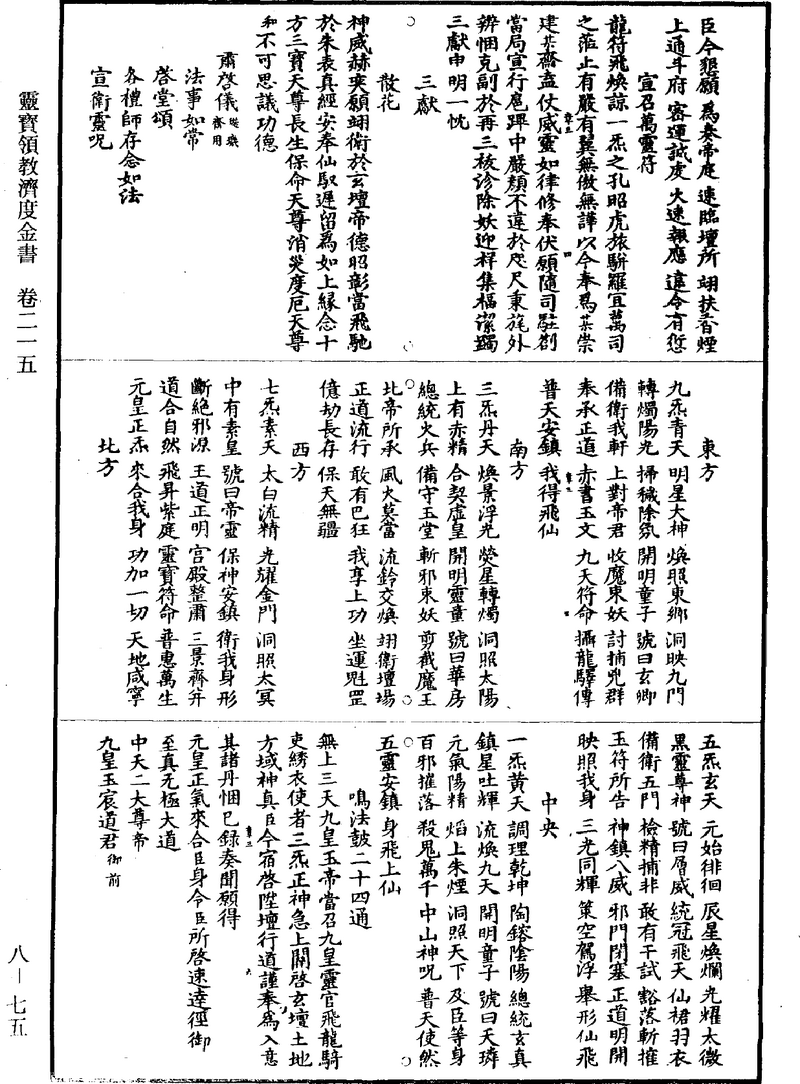 臣今懇願 爲奏帝庭 速臨壇所 翊扶香煙
上通斗府 密運誠虔 火速報應 違令有愆
宣召萬靈符
龍符飛煥諒一炁之孔昭虎旅駢羅宜萬司
之蒞止有嚴有翼無傲無譁以今奉爲某崇
建某齋益仗威靈如律修奉伏願隨司駐劄
當局宣行扈蹕中嚴顏不違於咫尺秉旄外
辨悃克副於再三核診除妖迎祥集福潔蠲
三獻申明一忱
三獻
散花
神威赫奕願翊衛於玄壇帝德昭彰當飛馳
於朱表真經安奉仙馭遲留爲如上緣念十
方三寶天尊長生保命天尊消災度厄天尊
和不可思議功德
肅啓儀
齋用
法事如常
啓堂頌
各禮師存念如法
宣衛靈呪
東方
九炁青天 明星大神 煥照東鄉 洞映九門
轉燭陽光 掃穢除氛 開明童子 號曰玄卿
備衛我軒 上對帝君 收魔束妖 討捕兇群
奉承正道 赤書玉文 九天符命 攝龍驛傳
普天安鎮 我得飛仙
南方
三炁丹天 煥景浮光 熒星轉燭 洞照太陽
上有赤精 合契虛皇 開明靈童 號曰華房
總統火兵 備守玉堂 斬邪束妖 剪截魔王
北帝所承 風火莫當 流鈴交煥 翊衛壇場
正道流行 敢有巴狂 我享上功 坐運魁罡
億劫長存 保天無疆
西方
七炁素天 太白流精 光耀金門 洞照太冥
中有素皇 號曰帝靈 保神安鎮 衛我身形
斷絕邪源 王道正明 宮殿整肅 三景齊并
道合自然 飛昇紫庭 靈寶符命 普惠萬生
元皇正炁 來合我身 功加一切 天地咸寧
北方
五炁玄天 元始徘徊 辰星煥爛 光耀太微
黑靈尊神 號曰層威 統冠飛天 仙裙羽衣
備衛五門 檢精捕非 敢有干試 豁落斬摧
玉符所告 神鎮八威 邪門閉塞 正道明開
映照我身 三光同輝 策空駕浮 舉形仙飛
中央
一炁黃天 調理乾坤 陶鎔陰陽 總統玄真
鎮星吐輝 流煥九天 開明童子 號曰天璘
元氣陽精 焰上朱煙 洞照天下 及臣等身
百邪摧落 殺鬼萬千 中山神呪 普天使然
五靈安鎮 身飛上仙
鳴法鼓二十四通
無上三天九皇玉帝當召九皇靈官飛龍騎
吏綉衣使者三炁正神急上關啓玄壇土地
方域神真臣今宿啓陞壇行道謹奉爲入意
其諸丹悃已錄奏聞願得
元皇正氣來合臣身令臣所啓速達徑御
至真无極大道
中天二大尊帝
九皇玉宸道君御前
靈寶領教濟度金書 卷二一五
八－七五